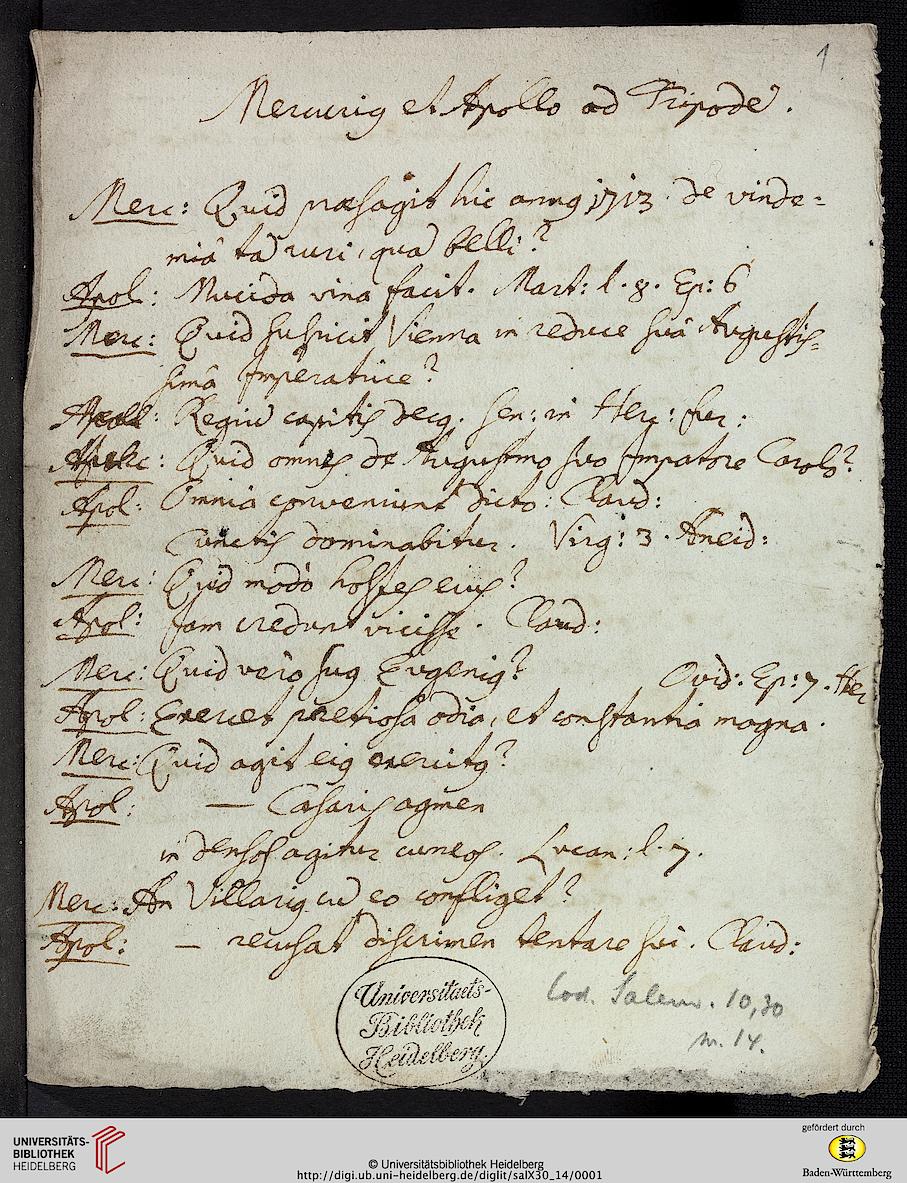 1
Mercurig et Apollo ad Tripode.
Merc: Quid præsagit hic anng 1713. de vinde=
miâ tā ruri, quā belli?
Apol: Mucida vina facit. Mart: l. 8. Ep: 6
Merc: Quid suspicit Vienna in reduce suâ Augustis=
simâ Imperatrice?
Apoll: Regiū capitis decg. Sen: in Herc: fur:
Merc: Quid omnes de Augustmo suo Impatore Carolo?
Apol: Omnia conveniunt dicto: Claud:
Cunctis dominabitur. Virg: 3. Aneid:
Merc: Quid modò hostes eius?
Apol: Jam credunt vicisse. Claud:
Merc: Quid verò sug Eugenig?
Ovid: Ep: 7. Her
Apol: Exercet pretiosa odia, et constantia magna.
Merc: Quid agit eig exercitg?
Apol: — Cæsaris agmen
in densos agitur cuneos. Lucan: l. 7.
Merc: An Villarig cū eo confliget?
Apol: — recusat discrimen tentare sui. Claud:
Universitaets-
Bibliothek
Heidelberg.
Cod. Salem. 10,30
n. 14.
UNIVERSITÄTS-
BIBLIOTHEK
HEIDELBERG
© Universitätsbibliothek Heidelberg
http://digi.ub.uni-heidelberg.de/diglit/salX30_14/0001
gefördert durch
Baden-Württemberg